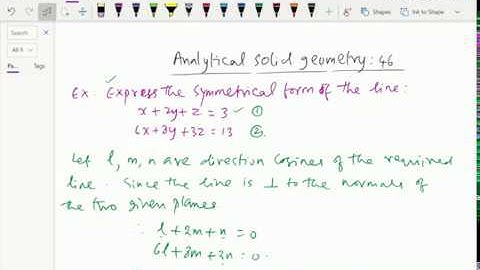 Shapes
Ink to Shape
Search
All R
Pa...
Analytical solid geometry: 46
Ex. Express the symmetrical form of the line:
x + 2y + z = 3 ①
6x + 8y + 3z = 13 ②
Let l, m, n are direction cosines of the required
line. Since the line is ⊥ to the normals of
the two given planes
∴ l + 2m + n = 0
6l + 8m + 3n = 0.